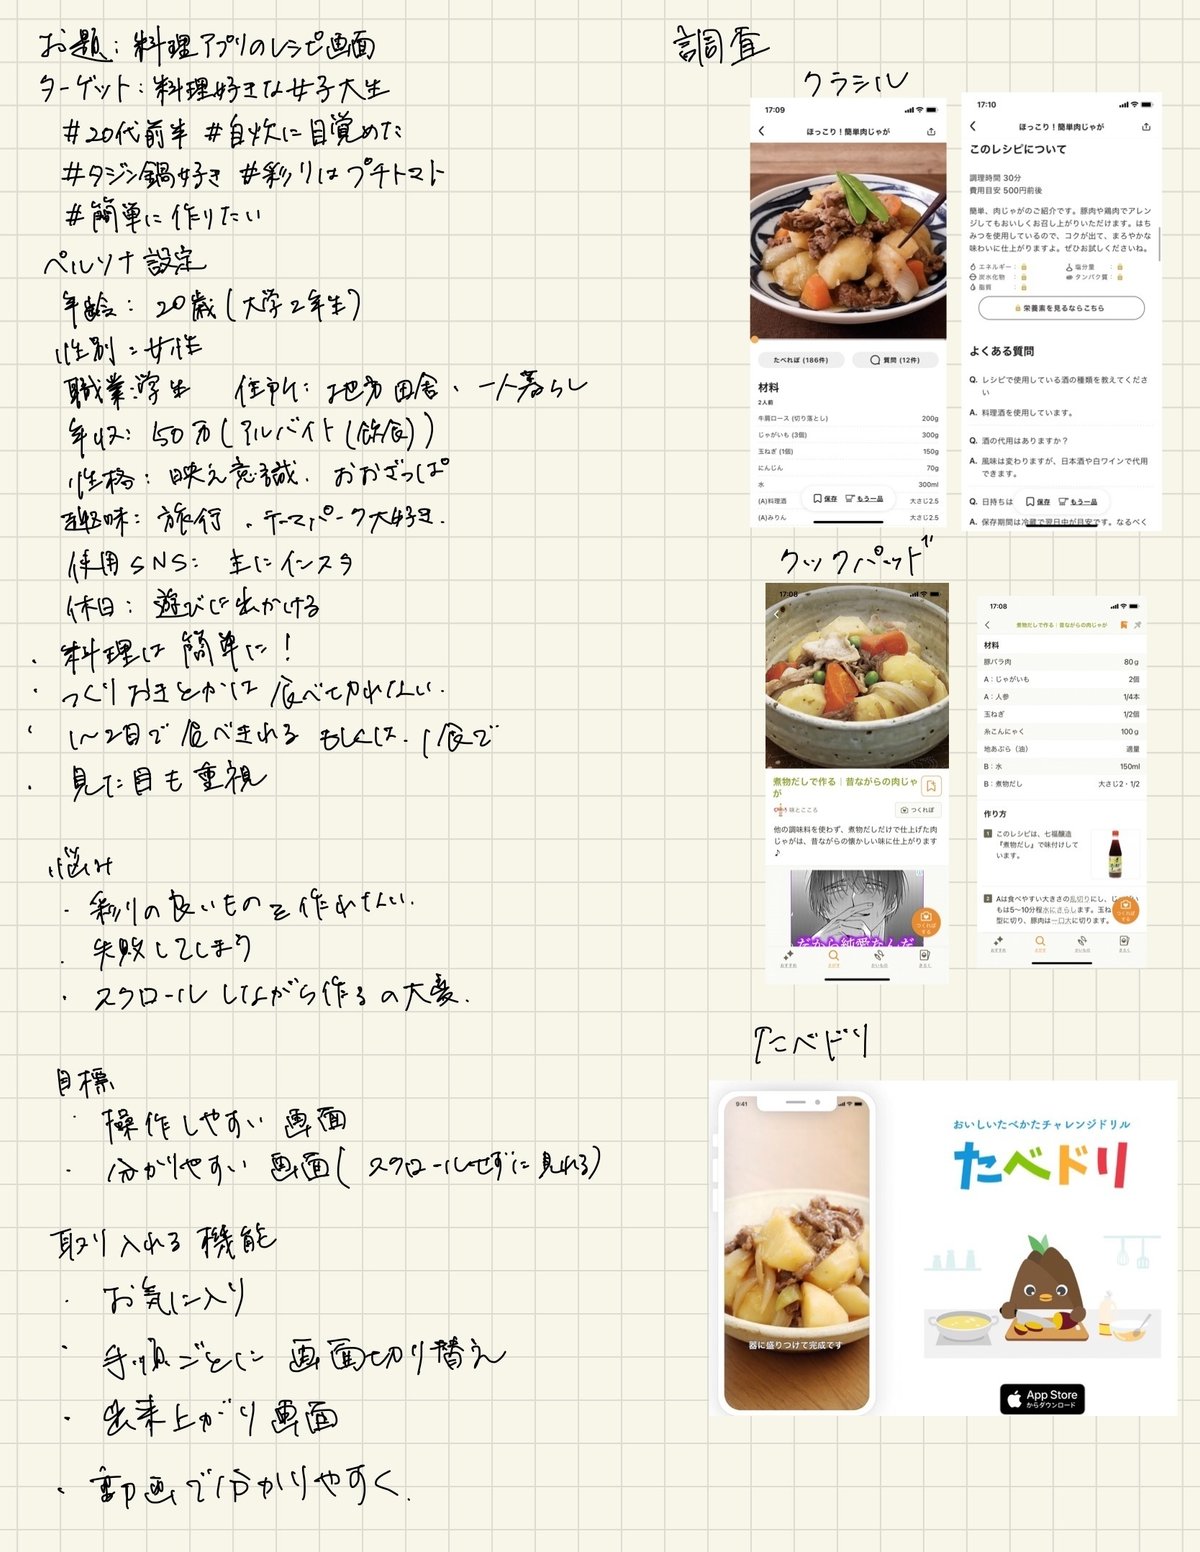 お題：料理アプリのレシピ画面
ターゲット：料理好きな女子大生
#20代前半 #自炊に目覚めた
#タジン鍋好き #彩りはプチトマト
#簡単に作りたい
ペルソナ設定
年齢： 20歳(大学2年生)
性別：女性
職業：学生 住所：地方田舎、一人暮らし
年収：50万(アルバイト(飲食))
性格：映え意識、おおざっぱ
趣味：旅行、テーマパーク大好き.
使用SNS：主にインスタ
休日：遊びに出かける
・料理は簡単に!
・つくりおきとかは食べ切れない.
・1〜2日で食べきれる もしくは、1食で
・見た目も重視
悩み
・彩りの良いものを作れない.
・失敗してしまう
・スクロールしながら作るの大変.
目標
・操作しやすい画面
・分かりやすい画面(スクロールせずに見れる)
取り入れる機能
・お気に入り
・手順ごとに画面切り替え
・出来上がり画面
・動画で分かりやすく.
調査
クラシル
17:09
ほっこり！簡単肉じゃが
たべれぽ (186件)
質問 (12件)
材料
2人前
牛肩ロース (切り落とし) 200g
じゃがいも (3個) 300g
玉ねぎ (1個) 150g
にんじん 70g
水 300ml
(A)料理酒 大さじ2.5
(A)みりん 大さじ2.5
保存 もう一品
17:10
ほっこり！簡単肉じゃが
このレシピについて
調理時間 30分
費用目安 500円前後
簡単、肉じゃがのご紹介です。豚肉や鶏肉でアレン
ジしてもおいしくお召し上がりいただけます。はち
みつを使用しているので、コクが出て、まろやかな
味わいに仕上がりますよ。ぜひお試しくださいね。
エネルギー： 塩分量：
炭水化物： タンパク質：
脂質：
栄養素を見るならこちら
よくある質問
Q. レシピで使用している酒の種類を教えてくださ
い
A. 料理酒を使用しています。
Q. 酒の代用はありますか？
A. 風味は変わりますが、日本酒や白ワインで代用
できます。
Q. 日持ちは
保存 もう一品
A. 保存期間は冷蔵で翌日中が目安です。なるべく
クックパッド
17:08
煮物だしで作る｜昔ながらの肉じゃ
が
味とこころ
つくれぽ
他の調味料を使わず、煮物だしだけで仕上げた肉
じゃがは、昔ながらの懐かしい味に仕上がります
♪
だから純愛なんだ
つくれぽ
する
おすすめ さがす かいもの きろく
17:08
煮物だしで作る｜昔ながらの肉じゃが
材料
豚バラ肉 80g
A：じゃがいも 2個
A：人参 1/4本
玉ねぎ 1/2個
糸こんにゃく 100g
地あぶら（油） 適量
B：水 150ml
B：煮物だし 大さじ2・1/2
作り方
1 このレシピは、七福醸造
『煮物だし』で味付けして
います。
2 Aは食べやすい大きさの乱切りにし、じゃがい
もは5〜10分程水にさらします。玉ね
型に切り、豚肉は一口大に切ります。
おすすめ さがす かいもの きろく
たべドリ
9:41
器に盛りつけて完成です
おいしいたべかたチャレンジドリル
たべドリ
App Store
からダウンロード